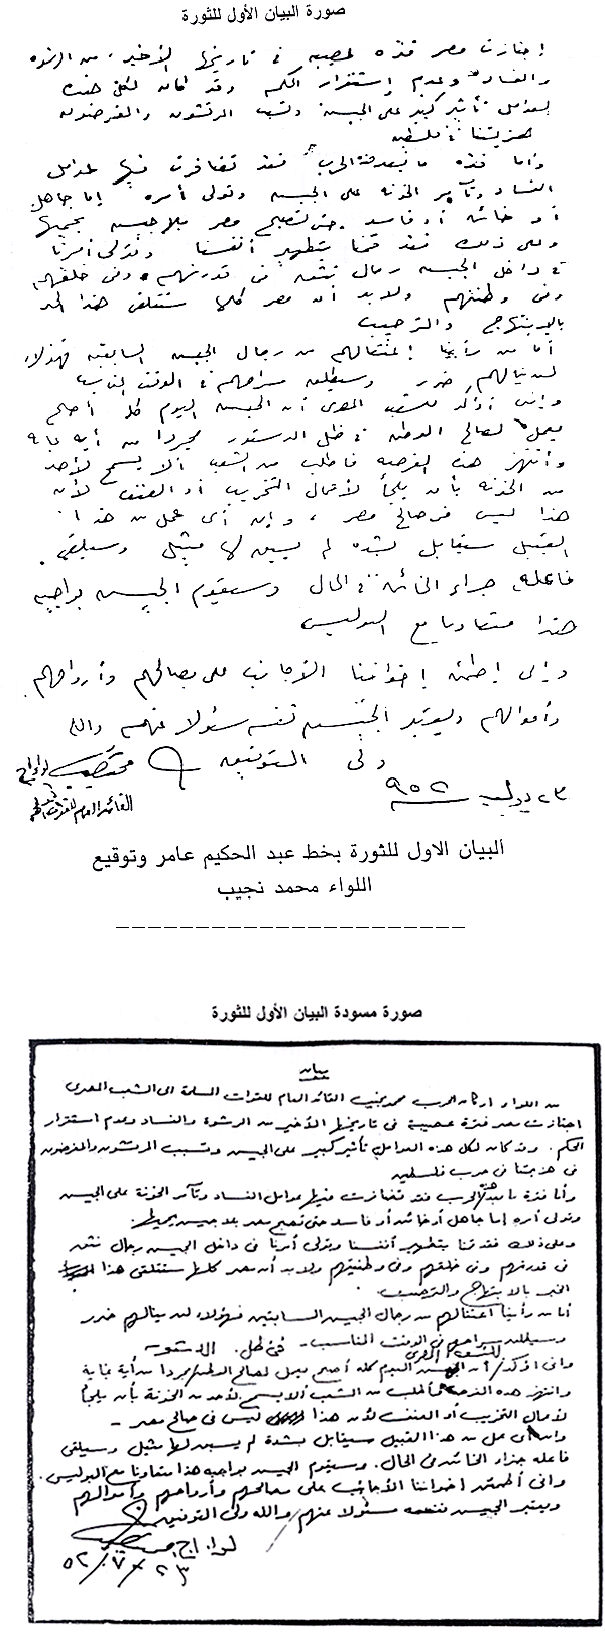 صورة البيان الأول للثورة
إجتازت مصر فترة عصيبة فى تاريخها الأخير من الرشوة
والفساد وعدم إستقرار الحكم وقد كان لكل هذه
العوامل تأثير كبير على الجيش وتسبب المرتشون والمغرضون
هزيمتنا فى فلسطين
وأما فترة ما بعد هذه الحرب فقد تضافرت فيها عوامل
الفساد وتآمر الخونة على الجيش وتولى أمره إما جاهل
أو خائن أو فاسد حتى تصبح مصر بلا جيش يحميها
وعلى ذلك فقد قمنا بتطهير أنفسنا وتولى أمرنا
فى داخل الجيش رجال نثق فى قدرتهم وفى خلقهم
وفى وطنيتهم ولابد أن مصر كلها ستتلقى هذا الخبر
بالابتهاج والترحيب
أما من رأينا إعتقالهم من رجال الجيش السابقين فهؤلاء
لن ينالهم ضرر وسيطلق سراحهم فى الوقت المناسب
وإنى أؤكد للشعب المصرى أن الجيش اليوم كله أصبح
يعمل لصالح الوطن فى ظل الدستور مجردا من أية غاية
وأنتهز هذه الفرصة فأطلب من الشعب ألا يسمح لأحد
من الخونة بأن يلجأ لأعمال التخريب أو العنف لأن
هذا ليس فى صالح مصر ، وإن أى عمل من هذا
القبيل سيقابل بشدة لم يسبق لها مثيل وسيلقى
فاعله جزاء الخائن فى الحال وسيقوم الجيش بواجبه
هذا متعاونا مع البوليس
وإنى إطمئن إخواننا الأجانب على مصالحهم وأرواحهم
وأموالهم ويعتبر الجيش نفسه مسئولا عنهم والله
ولى التوفيق
٢٣ يوليو ٩٥٢
القائد العام للقوات المسلحة
البيان الاول للثورة بخط عبد الحكيم عامر وتوقيع
اللواء محمد نجيب
صورة مسودة البيان الأول للثورة
بيان
من اللواء اركان الحرب محمد نجيب القائد العام للقوات المسلحة الى الشعب المصرى
اجتازت مصر فترة عصيبة فى تاريخها الأخير من الرشوة والفساد وعدم استقرار
الحكم . وقد كان لكل هذه العوامل تأثير كبير على الجيش وتسبب المرتشون والمغرضون
فى هزيمتنا فى حرب فلسطين
وأما فترة ما بعد هذه الحرب فقد تضافرت فيها عوامل الفساد وتآمر الخونة على الجيش
وتولى أمره إما جاهل أو خائن أو فاسد حتى تصبح مصر بلا جيش يحميها .
وعلى ذلك فقد قمنا بتطهير أنفسنا وتولى أمرنا فى داخل الجيش رجال نثق
فى قدرتهم وفى خلقهم وفى وطنيتهم ولابد أن مصر كلها ستتلقى هذا
الخبر بالابتهاج والترحيب .
أما من رأينا اعتقالهم من رجال الجيش السابقين فهؤلاء لن ينالهم ضرر
وسيطلق سراحهم فى الوقت المناسب - فى ظل الدستور
وانى أؤكد للشعب المصرى أن الجيش اليوم كله أصبح يعمل لصالح الوطن مجردا من أية غاية
وانتهز هذه الفرصة فأطلب من الشعب ألا يسمح لأحد من الخونة بأن يلجأ
لأعمال التخريب أو العنف لأن هذا ليس فى صالح مصر -
وان أى عمل من هذا القبيل سيقابل بشدة لم يسبق لها مثيل وسيلقى
فاعله جزاء الخائن فى الحال . وسيقوم الجيش بواجبه هذا متعاونا مع البوليس .
وانى أطمئن اخواننا الأجانب على مصالحهم وأرواحهم وأموالهم
ويعتبر الجيش نفسه مسئولا عنهم والله ولى التوفيق
لواء ا ح
٢٣/٧/٥٢